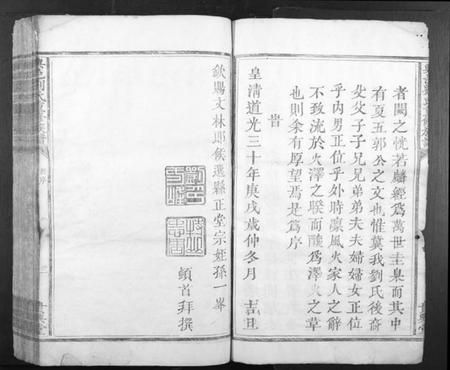 者闕之恍若麟經為萬世圭臬而其中
有夏五郭公之文也惟冀我劉氏後裔
父父子子兄兄弟弟夫夫婦婦女正位
乎內男正位乎外時凜風火家人之辭
不致流於火澤之睽而釀為澤火之革
也則余有厚望焉是為序
旹
皇清道光三十年庚戌歲仲冬月 吉旦
欽賜文林郎候選縣正堂宗姪孫一峯
頓首拜撰